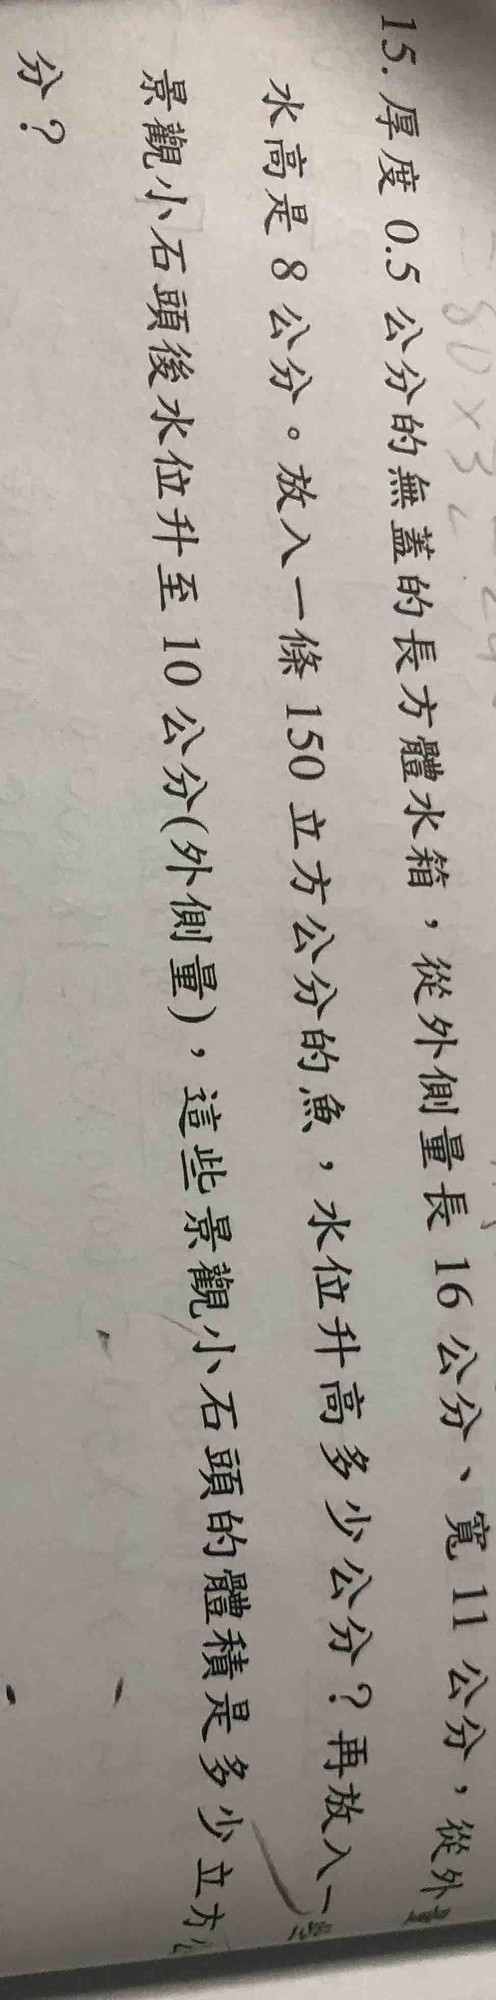 15. 厚度 0.5 公分的無蓋的長方體水箱，從外側量長 16 公分、寬 11 公分，從外量
水高是 8 公分。放入一條 150 立方公分的魚，水位升高多少公分？再放入一些
景觀小石頭後水位升至 10 公分(外側量)，這些景觀小石頭的體積是多少立方公
分？